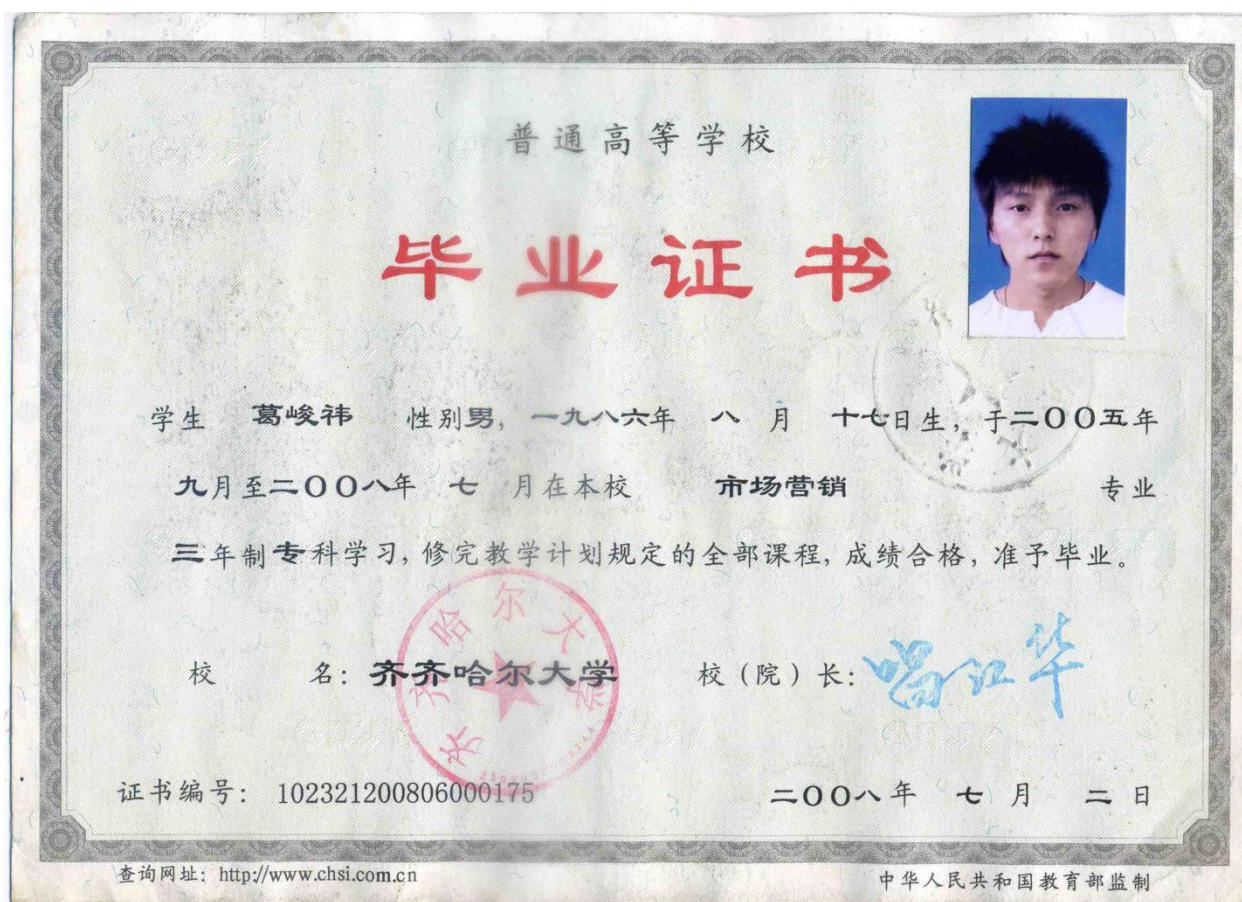 普通高等学校
毕业证书
学生 葛峻祎 性别男，一九八六年 八 月 十七日生，于二〇〇五年
九月至二〇〇八年 七 月在本校 市场营销 专业
三年制专科学习，修完教学计划规定的全部课程，成绩合格，准予毕业。
校 名：齐齐哈尔大学 校（院）长：
齐齐哈尔大学
证书编号：102321200806000175 二〇〇八年 七 月 二 日
查询网址：http://www.chsi.com.cn 中华人民共和国教育部监制